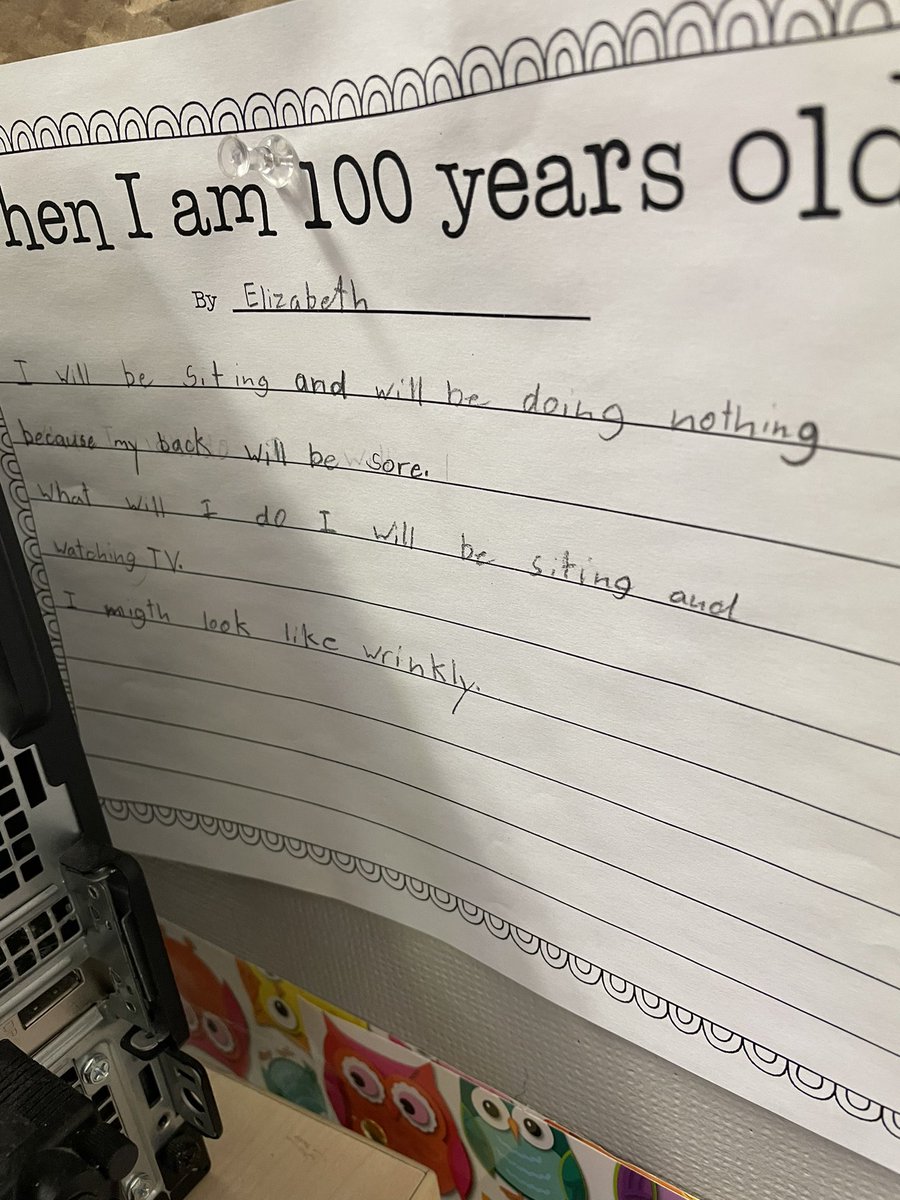 hen I am 100 years old
By Elizabeth
I will be siting and will be doing nothing
because my back will be sore.
What will I do I will be siting and
watching TV.
I migth look like wrinkly.